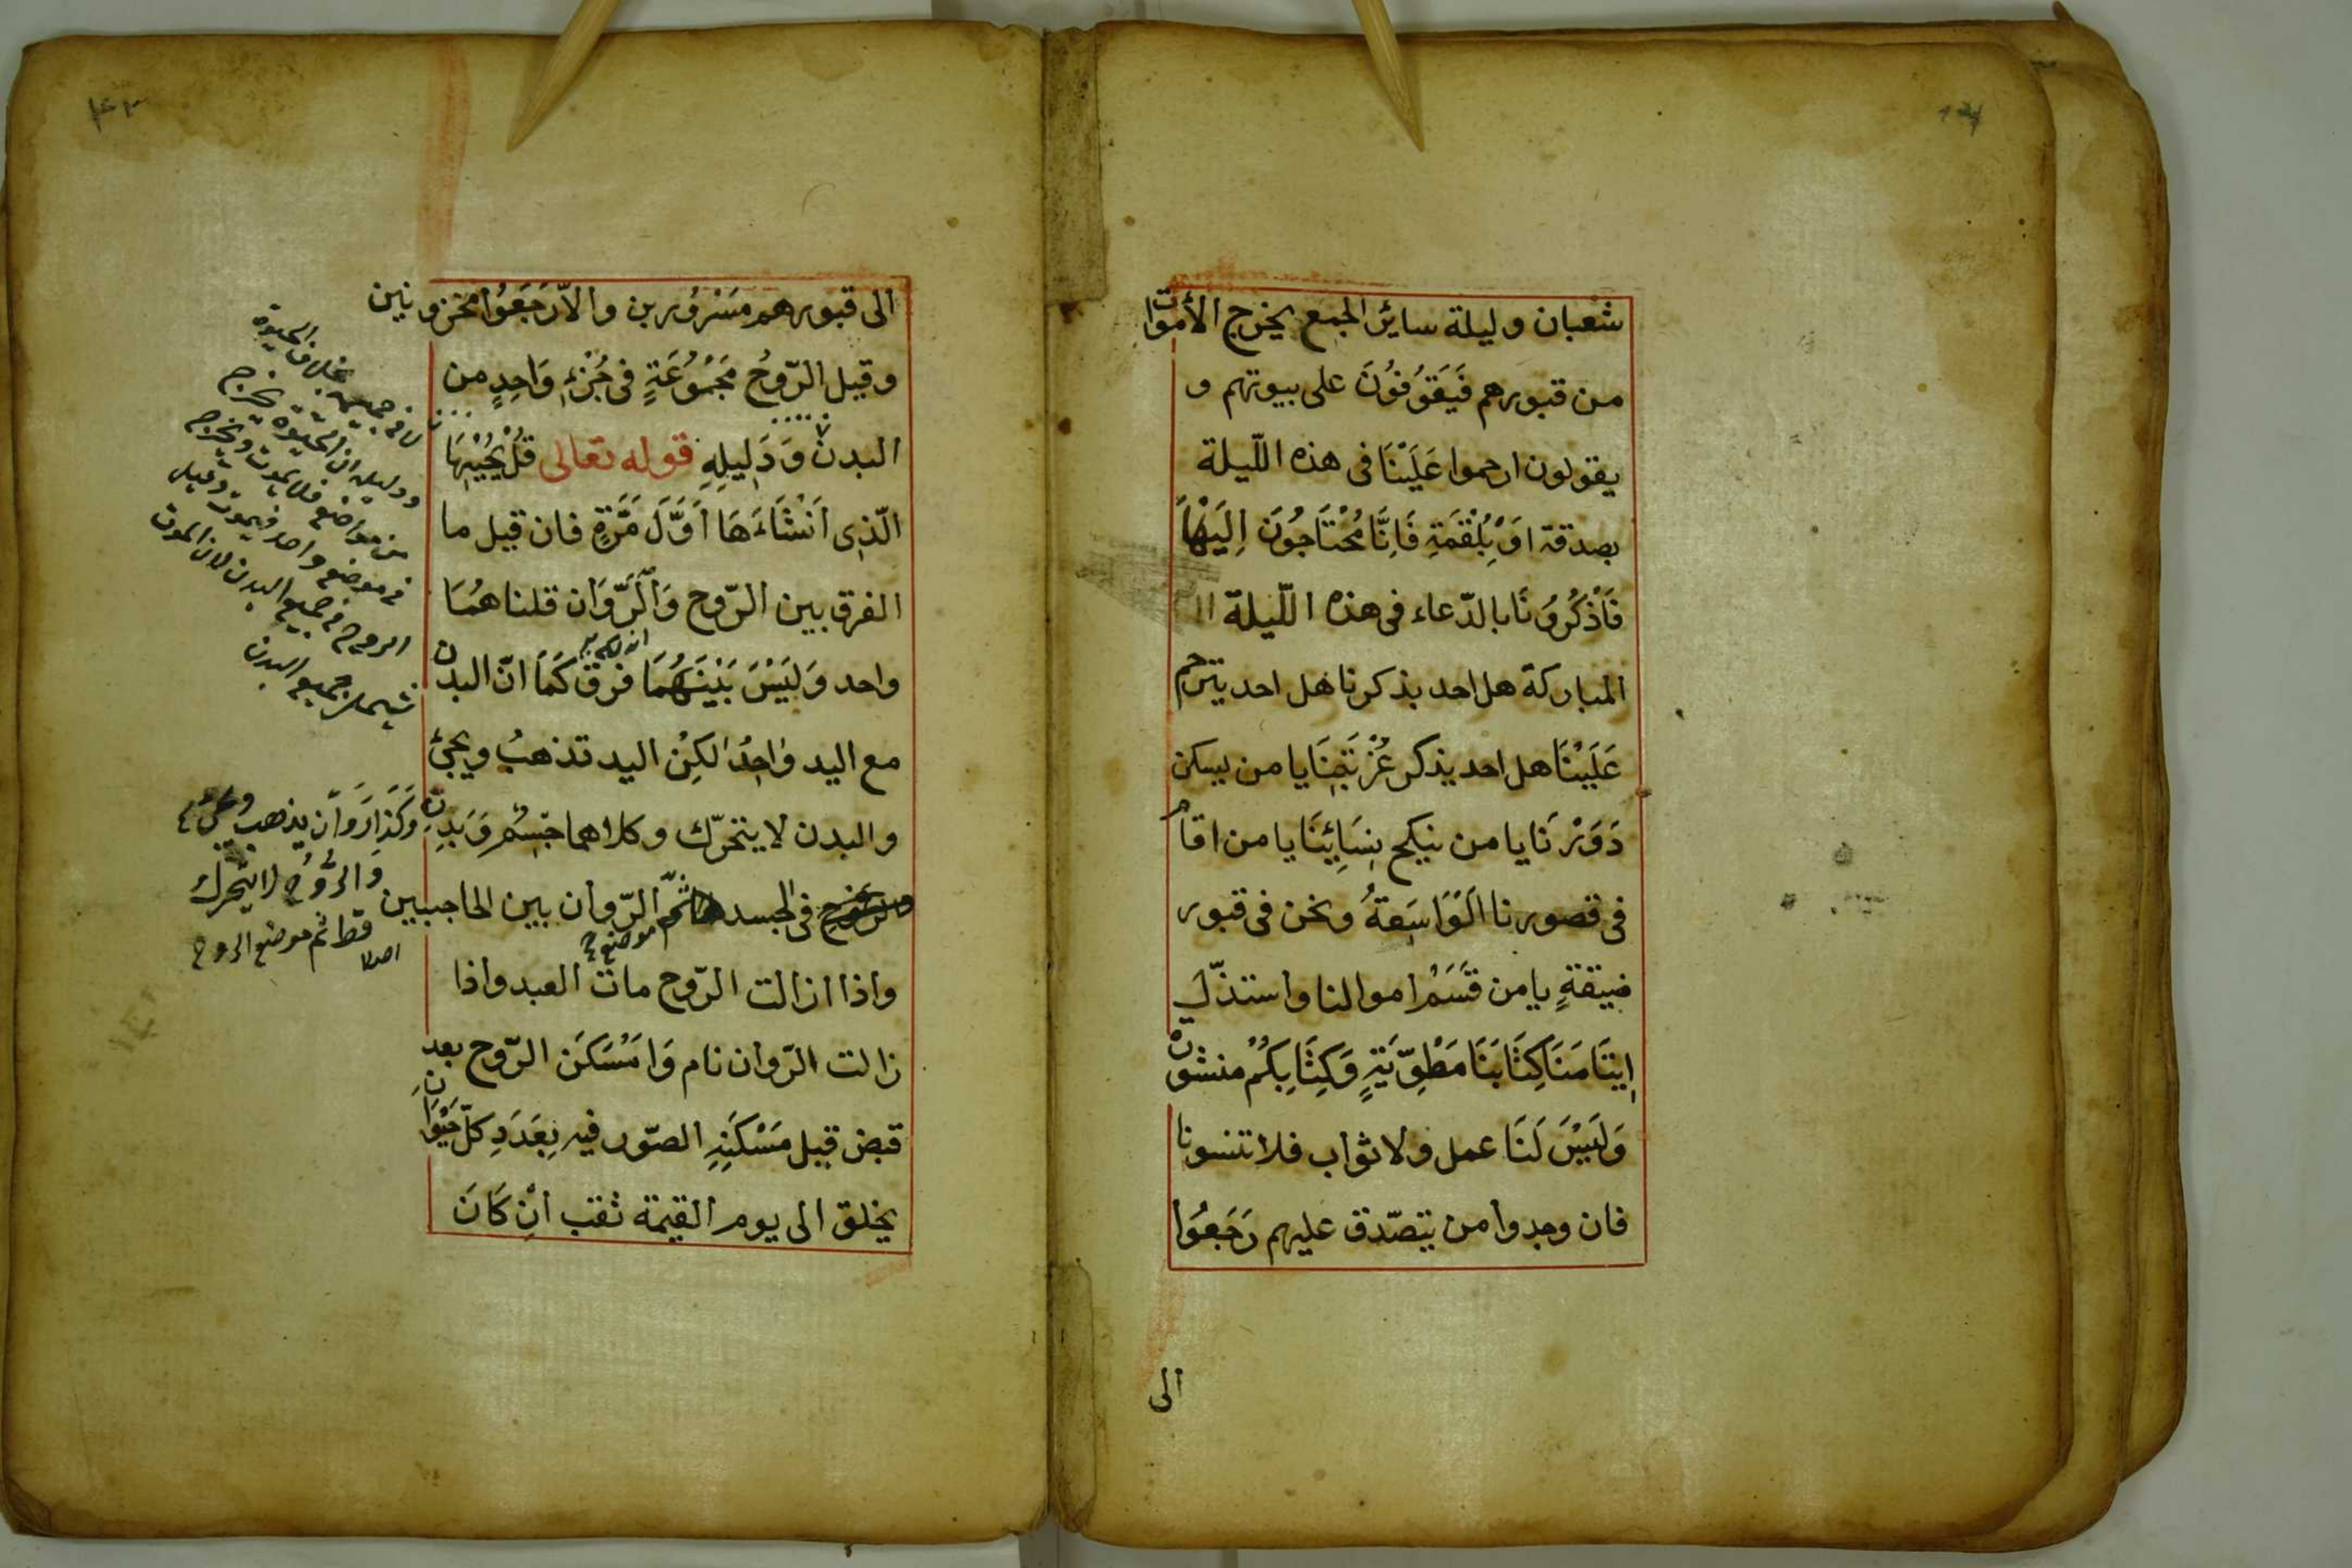 شعبان وليلة سائر الجمع يخرج الأموات
من قبورهم فَيَقِفُونَ على بيوتهم و
يقولون ارحموا عَلَيْنَا فى هذه اللّيلة
بصدقة اَوْ بِلُقْمَةٍ فَاِنَّا مُحْتَاجُونَ اِلَيْهَا
فَاذْكُرُونَا بالدّعاء فى هذه اللّيلة
المباركة هل احد يذكرنا هل احد يترحم
عَلَيْنَا هل احد يذكر غُرْبَتِنَا يا من يسكن
دَوَرْنَا يا من نيكح بنِسَائِنَا يا من اقام
فى قصورنا الوَاسِعَةُ ونحن فى قبور
ضيقةٍ يا من قَسَمْ اموالنا واستذلّ
اِيتَامَنَا كِتَابَنَا مَطْوِّيَةٍ وَكِتَابِكُمْ منشور
وَلَيْسَ لَنَا عمل ولا ثواب فلا تنسونا
فان وجدوا من يتصّدق عليهم رَجَعُوا
الى
الى قبورهم مَسْرُورين والاّ رَجَعُوا محزونين
وقيل الرّوحُ مَجْمُوعَةٍ فى جُزْءٍ وَاحِدٍ من
البدن وَدَلِيلِهِ قوله تعالى قُلْ يُحْيِيْهَا
الّذِى اَنْشَاءَهَا اَوَّلَ مَرَّةٍ فان قيل ما
الفرق بين الرّوح وَالرَّوَان قلنا هُمَا
واحد وَلَيْسَ بَيْنَهُمَا فرق كَمَا انّ البدن
مع اليد وَاحِدُ لكِنْ اليد تذهبُ ويجئ
والبدن لا يتحرّك وكلاهما جِسْمٍ وَبَدِنٍ
وَكَذَا رَوَان يذهب ويجئ
وَالرُّوُح لا يتحرك
فى الجسد ثمّ الرّوان بين الحاجبين
قط ثم موضع الروح
اصلا
واذا ازالت الرّوح مات العبد واذا
زالت الرّوان نام وَامَسْكَن الرّوح بعد
قبض قيل مَسْكَنِهِ الصّور فيه بِعَدَدِ كلّ حَيْوَانٍ
يخلق الى يوم القيمة ثقب اِنْ كَانَ
بخلاف الحيوة
ودليله ان الحيوة يخرج
فى موضع واحد فيموت وقيل
الروح فى جميع البدن لان الموت
يشمل جميع البدن